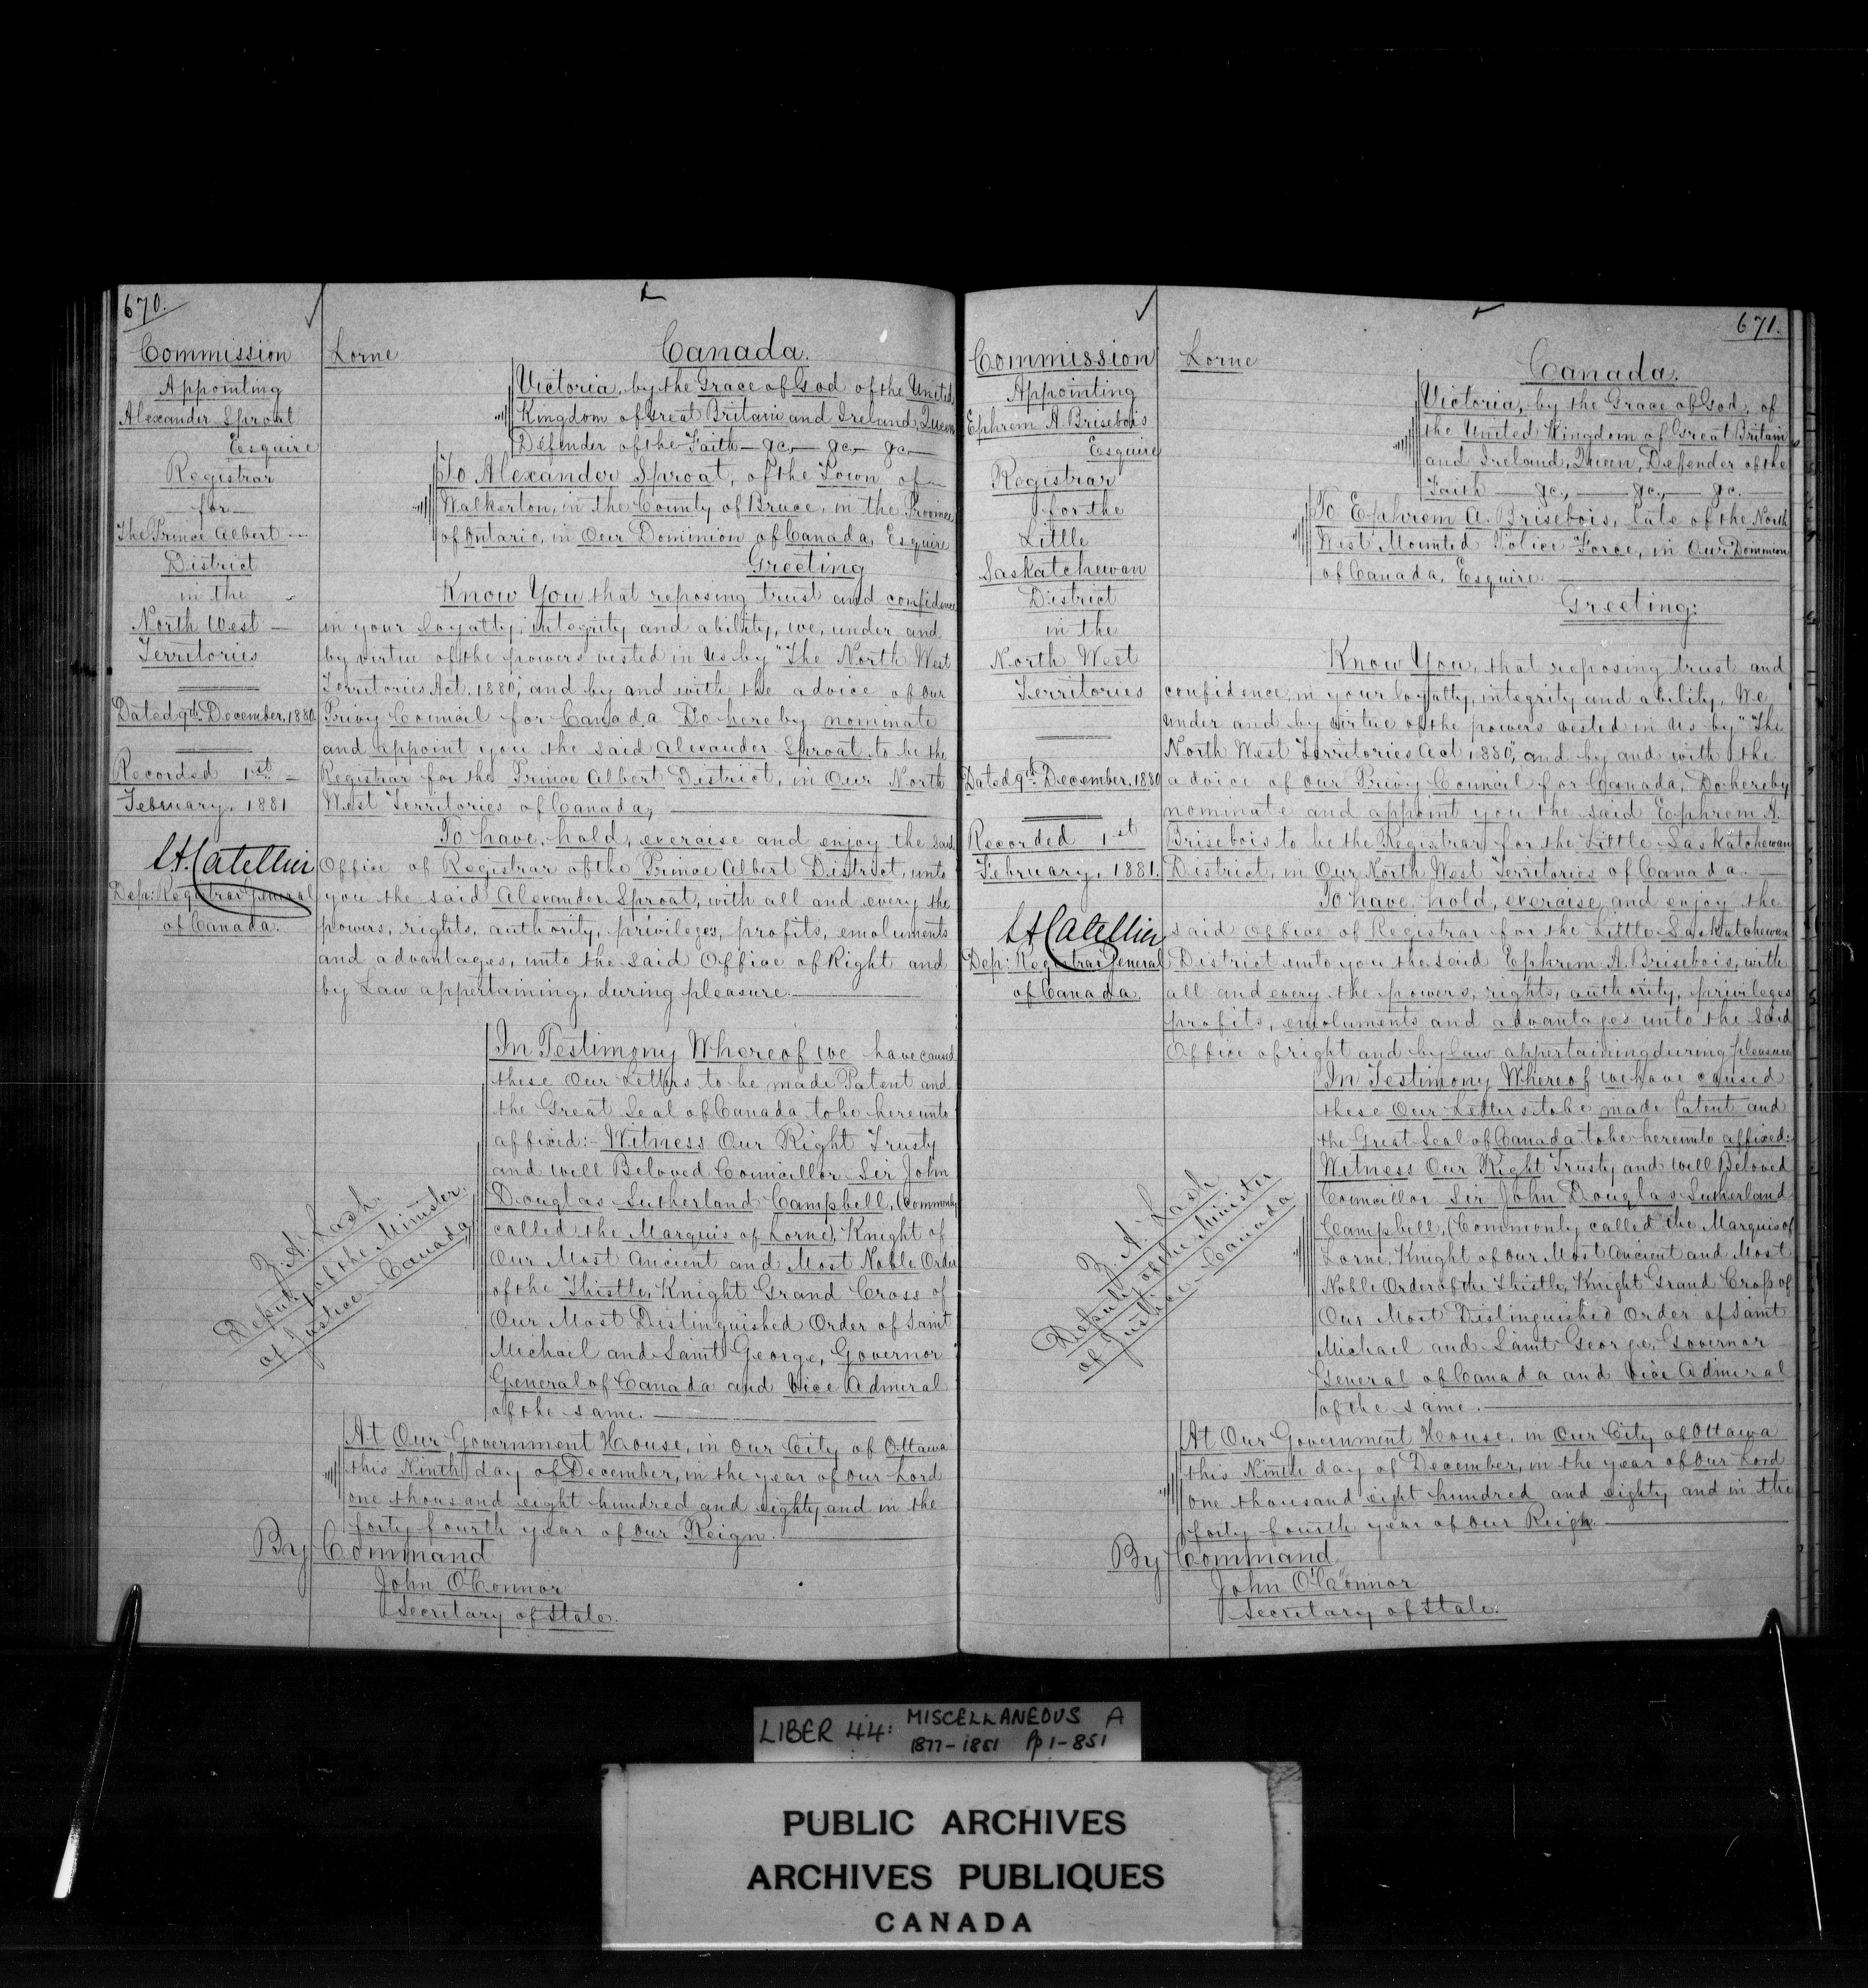 670.
Commission
Appointing
Alexander Sproat
Esquire
Registrar
for
The Prince Albert
District
in the
North West
Territories
Dated 9th December, 1880
Recorded 1st
February, 1881
Dep: Registrar General
of Canada.
Lorne
Canada.
Victoria, by the Grace of God of the United
Kingdom of Great Britain and Ireland, Queen
Defender of the Faith — &c, — &c, — &c —
To Alexander Sproat, of the Town of
Walkerton, in the County of Bruce, in the Province
of Ontario, in Our Dominion of Canada, Esquire
Greeting
Know You that reposing trust and confidence
in your loyalty, integrity and ability, we, under and
by virtue of the powers vested in Us by "The North West
Territories Act. 1880," and by and with the advice of our
Privy Council for Canada Do hereby nominate
and appoint you the said Alexander Sproat to be the
Registrar for the Prince Albert District, in Our North
West Territories of Canada,
To have, hold, exercise and enjoy the said
Office of Registrar of the Prince Albert District, unto
you the said Alexander Sproat, with all and every the
powers, rights, authority, privileges, profits, emoluments
and advantages, unto the said Office of Right and
by Law appertaining, during pleasure.
In Testimony Whereof We have caused
these Our Letters to be made Patent and
the Great Seal of Canada to be hereunto
affixed:- Witness Our Right Trusty
and well Beloved Councillor Sir John
Douglas Sutherland Campbell, (Commonly
called the Marquis of Lorne), Knight of
Our Most Ancient and Most Noble Order
of the Thistle, Knight Grand Cross of
Our Most Distinguished Order of Saint
Michael and Saint George, Governor
General of Canada and Vice Admiral
of the same.
Z. A. Lash
Deputy of the Minister
of Justice Canada
At Our Government House, in our City of Ottawa
this Ninth day of December, in the year of our Lord
one thousand eight hundred and eighty and in the
forty fourth year of our Reign.
By Command
John O'Connor
Secretary of State.
671.
Commission
Appointing
Ephrem A. Brisebois
Esquire
Registrar
for the
Little
Saskatchewan
District
in the
North West
Territories
Dated 9th December, 1880
Recorded 1st
February, 1881.
Dep: Registrar General
of Canada.
Lorne
Canada.
Victoria, by the Grace of God, of
the United Kingdom of Great Britain
and Ireland, Queen, Defender of the
Faith — &c, — &c, — &c. —
To Ephrem A. Brisebois, late of the North
West Mounted Police Force, in Our Dominion
of Canada, Esquire.
Greeting:
Know You, that reposing trust and
confidence in your loyalty, integrity and ability, We
under and by virtue of the powers vested in Us by "The
North West Territories Act 1880," and by and with the
advice of our Privy Council for Canada, Do hereby
nominate and appoint you the said Ephrem A.
Brisebois to be the Registrar for the Little Saskatchewan
District, in Our North West Territories of Canada.
To have, hold, exercise and enjoy the
said Office of Registrar for the Little Saskatchewan
District unto you the said Ephrem A. Brisebois, with
all and every the powers, rights, authority, privileges
profits, emoluments and advantages unto the said
Office of right and by law appertaining during pleasure
In Testimony Whereof we have caused
these Our Letters to be made Patent and
the Great Seal of Canada to be hereunto affixed:
Witness Our Right Trusty and well Beloved
Councillor Sir John Douglas Sutherland
Campbell, (Commonly called the Marquis of
Lorne, Knight of Our Most Ancient and Most
Noble Order of the Thistle, Knight Grand Cross of
Our Most Distinguished Order of Saint
Michael and Saint George, Governor
General of Canada and Vice Admiral
of the same.
Z. A. Lash
Deputy of the Minister
of Justice Canada
At Our Government House, in Our City of Ottawa
this Ninth day of December, in the year of Our Lord
one thousand eight hundred and eighty and in the
forty fourth year of Our Reign.
By Command
John O'Connor
Secretary of State.
LIBER 44: MISCELLANEOUS A
1877-1881 Pp 1-851
PUBLIC ARCHIVES
ARCHIVES PUBLIQUES
CANADA